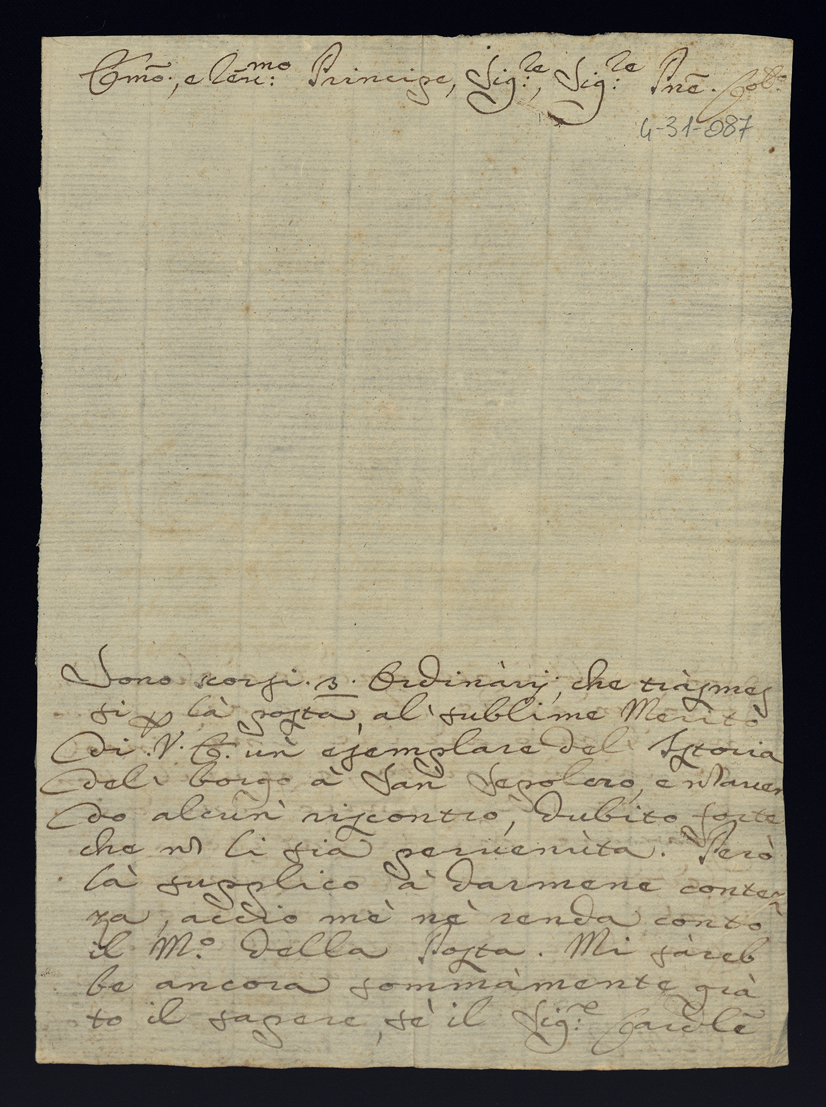 Emõ., e Reũ.mo Principe, Sig.re, Sig.re Pnẽ. Col.mo
4-31-087
Sono scorsi. 3. Ordinàrij, che tràsmes
si p là posta, al sublime Merito
di .V. E. un' esemplare del Istoria
del borgo à San Sepolcro, e nõ aven
do alcun' riscontro, dubito forte
che nõ li sia pervenuta. Però
là supplico à darmene conteñ
za, acciò mè nè renda conto
il M.o della Posta. Mi sàreb
be ancora sommàmente grà
to il sapere, sè il Sig.re Cardlẽ